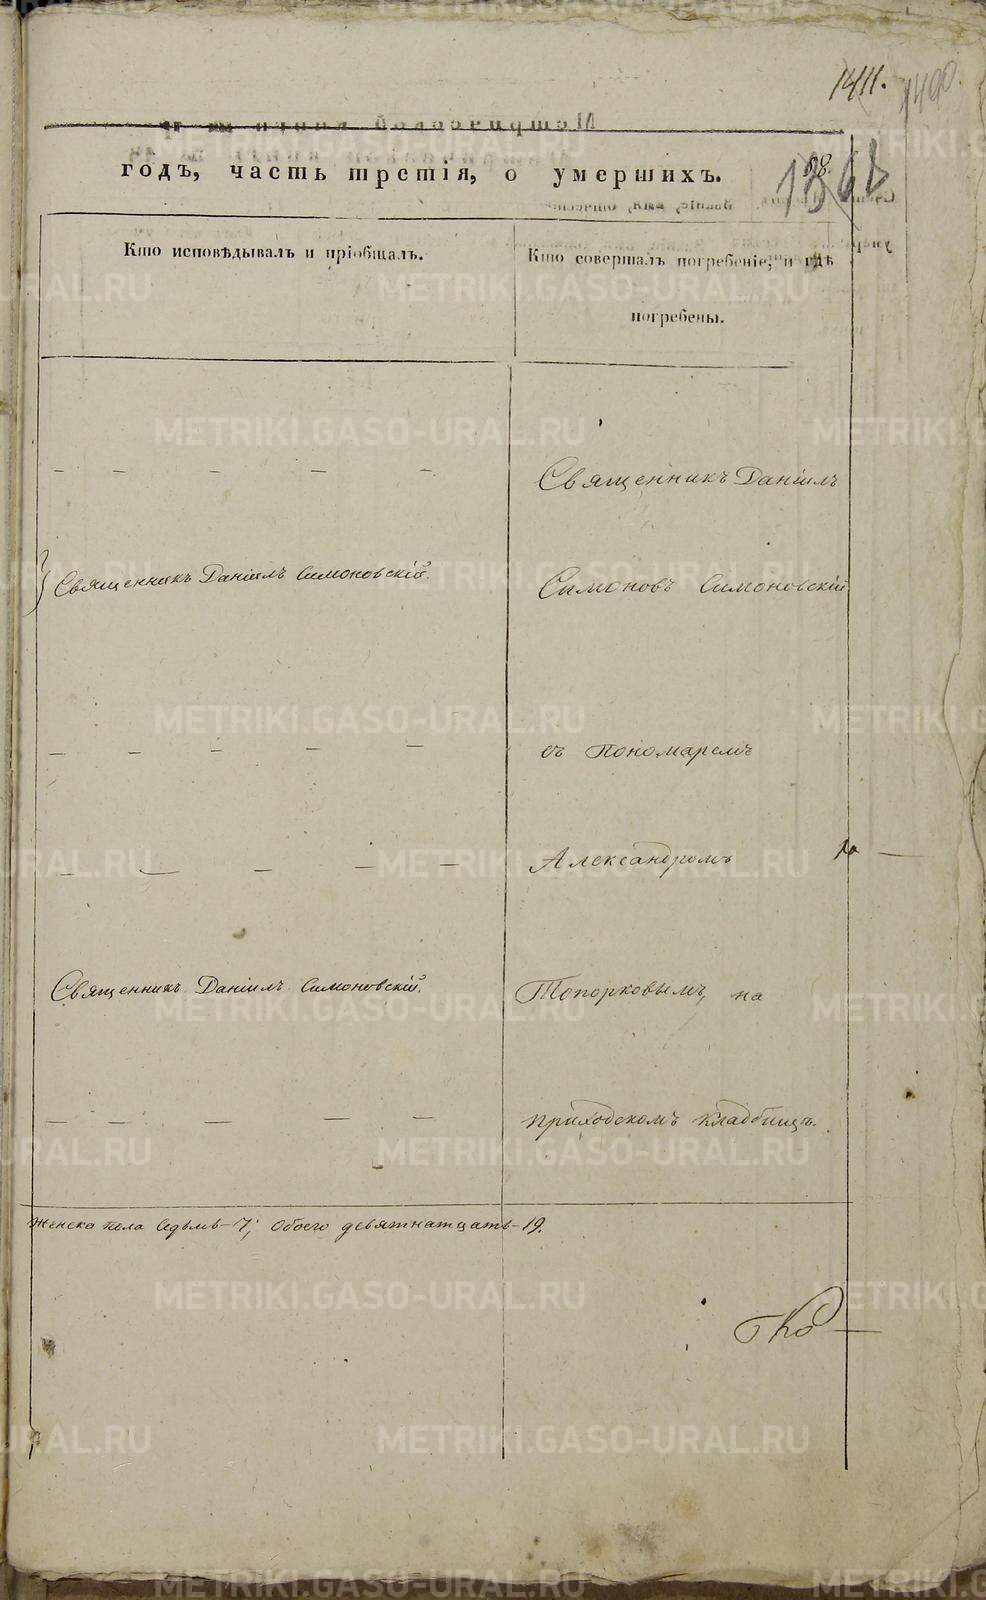 1411.
1490.
годъ, часть третія, о умершихъ.
Кто исповѣдывалъ и пріобщалъ.
Кто совершалъ погребеніе, и гдѣ
погребены.
Священникъ Даніилъ
Священникъ Даніилъ Симоновскій.
Симоновъ Симоновскій
съ Пономаремъ
Александромъ
Священникъ Даніилъ Симоновскій.
Топорковымъ, на
приходскомъ кладбищѣ.
Женска пола Седьмь-7; Обоего девятнатцать-19.
METRIKI.GASO-URAL.RU